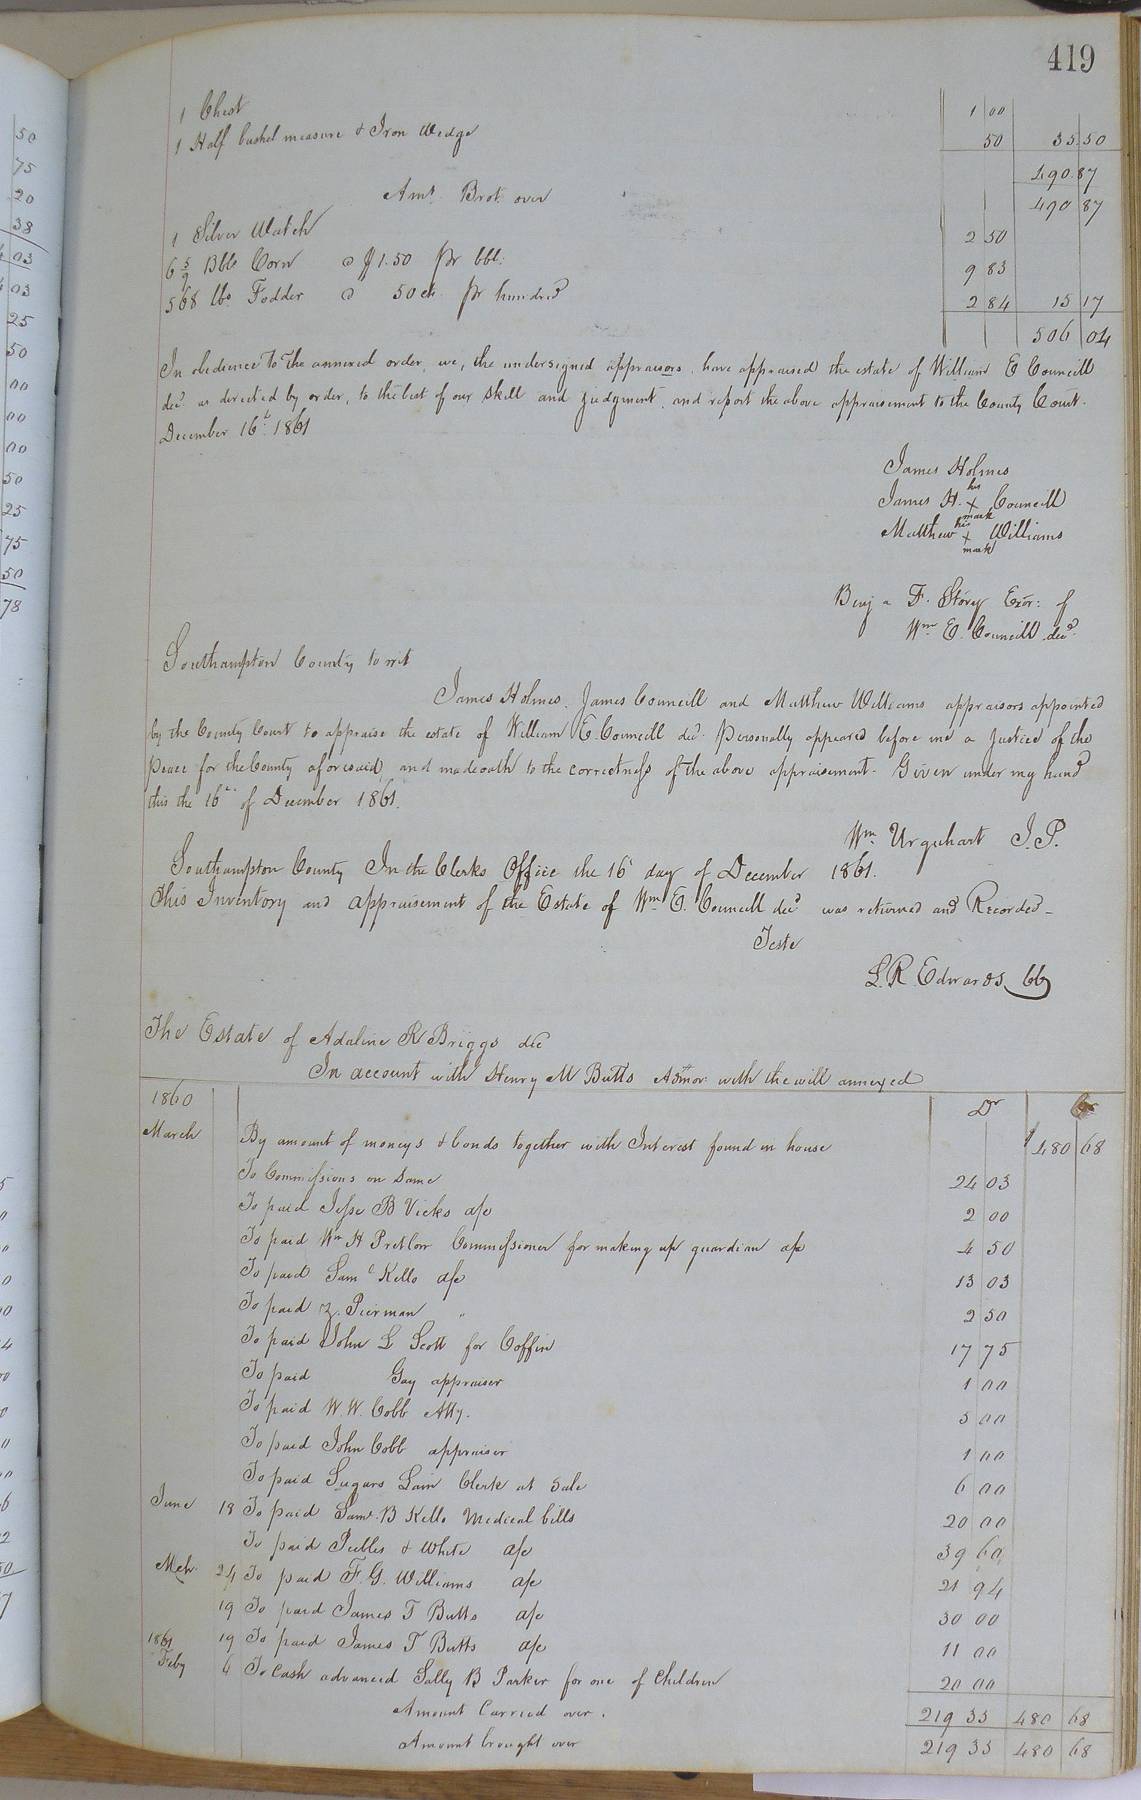 419
1 Chest 1 00
1 Half bushel measure & Iron Wedge 50 35 50
490 87
Amt. Brot. over 490 87
1 Silver Watch 2 50
6 5/9 Bbls Corn @ $1.50 pr bbl: 9 83
568 lbs Fodder @ 50 cts pr hundred 2 84 15 17
506 04
In obedience to the annexed order, we, the undersigned appraisors, have appraised the estate of William E Councill
decd. as directed by order, to the best of our skill and judgment, and report the above appraisement to the County Court.
December 16th 1861
James Holmes
James H. his X mark Councill
Matthew his X mark Williams
Benja F. Storey Exor: of
Wm E. Councill decd.
Southampton County to wit
James Holmes, James Councill and Matthew Williams appraisors appointed
by the County Court to appraise the estate of William E. Councill decd. Personally appeared before me a Justice of the
Peace for the County aforesaid, and made oath to the correctness of the above appraisement. Given under my hand
this the 16th of December 1861.
Wm Urquhart J.P.
Southampton County In the Clerks Office the 16th day of December 1861.
This Inventory and appraisement of the Estate of Wm E. Councill decd was returned and Recorded_
Teste
L. R. Edwards CC
The Estate of Adaline R Briggs decd
In account with Henry M Butts Admor. with the will annexed
1860 Dr Cr
March By amount of moneys & bonds together with Interest found in house $480 68
To Commissions on same 24 03
To paid Jesse B Vicks a/c 2 00
To paid Wm H Pretlow Commissioner for making up guardian a/c 4 50
To paid Saml Kello a/c 13 03
To paid Z. Pierman " 2 50
To paid John L Scott for Coffin 17 75
To paid Gay appraiser 1 00
To paid W. W. Cobb Atty. 5 00
To paid John Cobb appraiser 1 00
To paid Sugars Lain Clerk at Sale 6 00
June 18 To paid Saml. B Kello Medical bills 20 00
To paid Peebles & White a/c 39 60
Mch. 24 To paid F. G. Williams a/c 21 94
19 To paid James T Butts a/c 30 00
19 To paid James T Butts a/c 11 00
1861
Feby 6 To Cash advanced Sally B Parker for one of Children 20 00
Amount Carried over. 219 35 480 68
Amount brought over 219 35 480 68